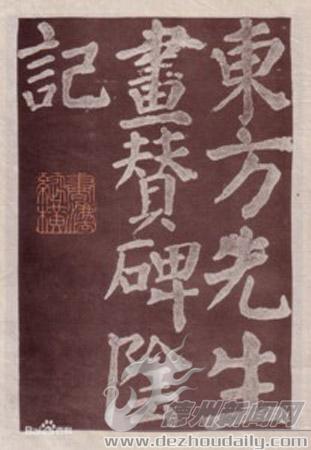 東方先生
畫賛碑陰
記
德州新闻网
www.dezhoudaily.com
Bai百科